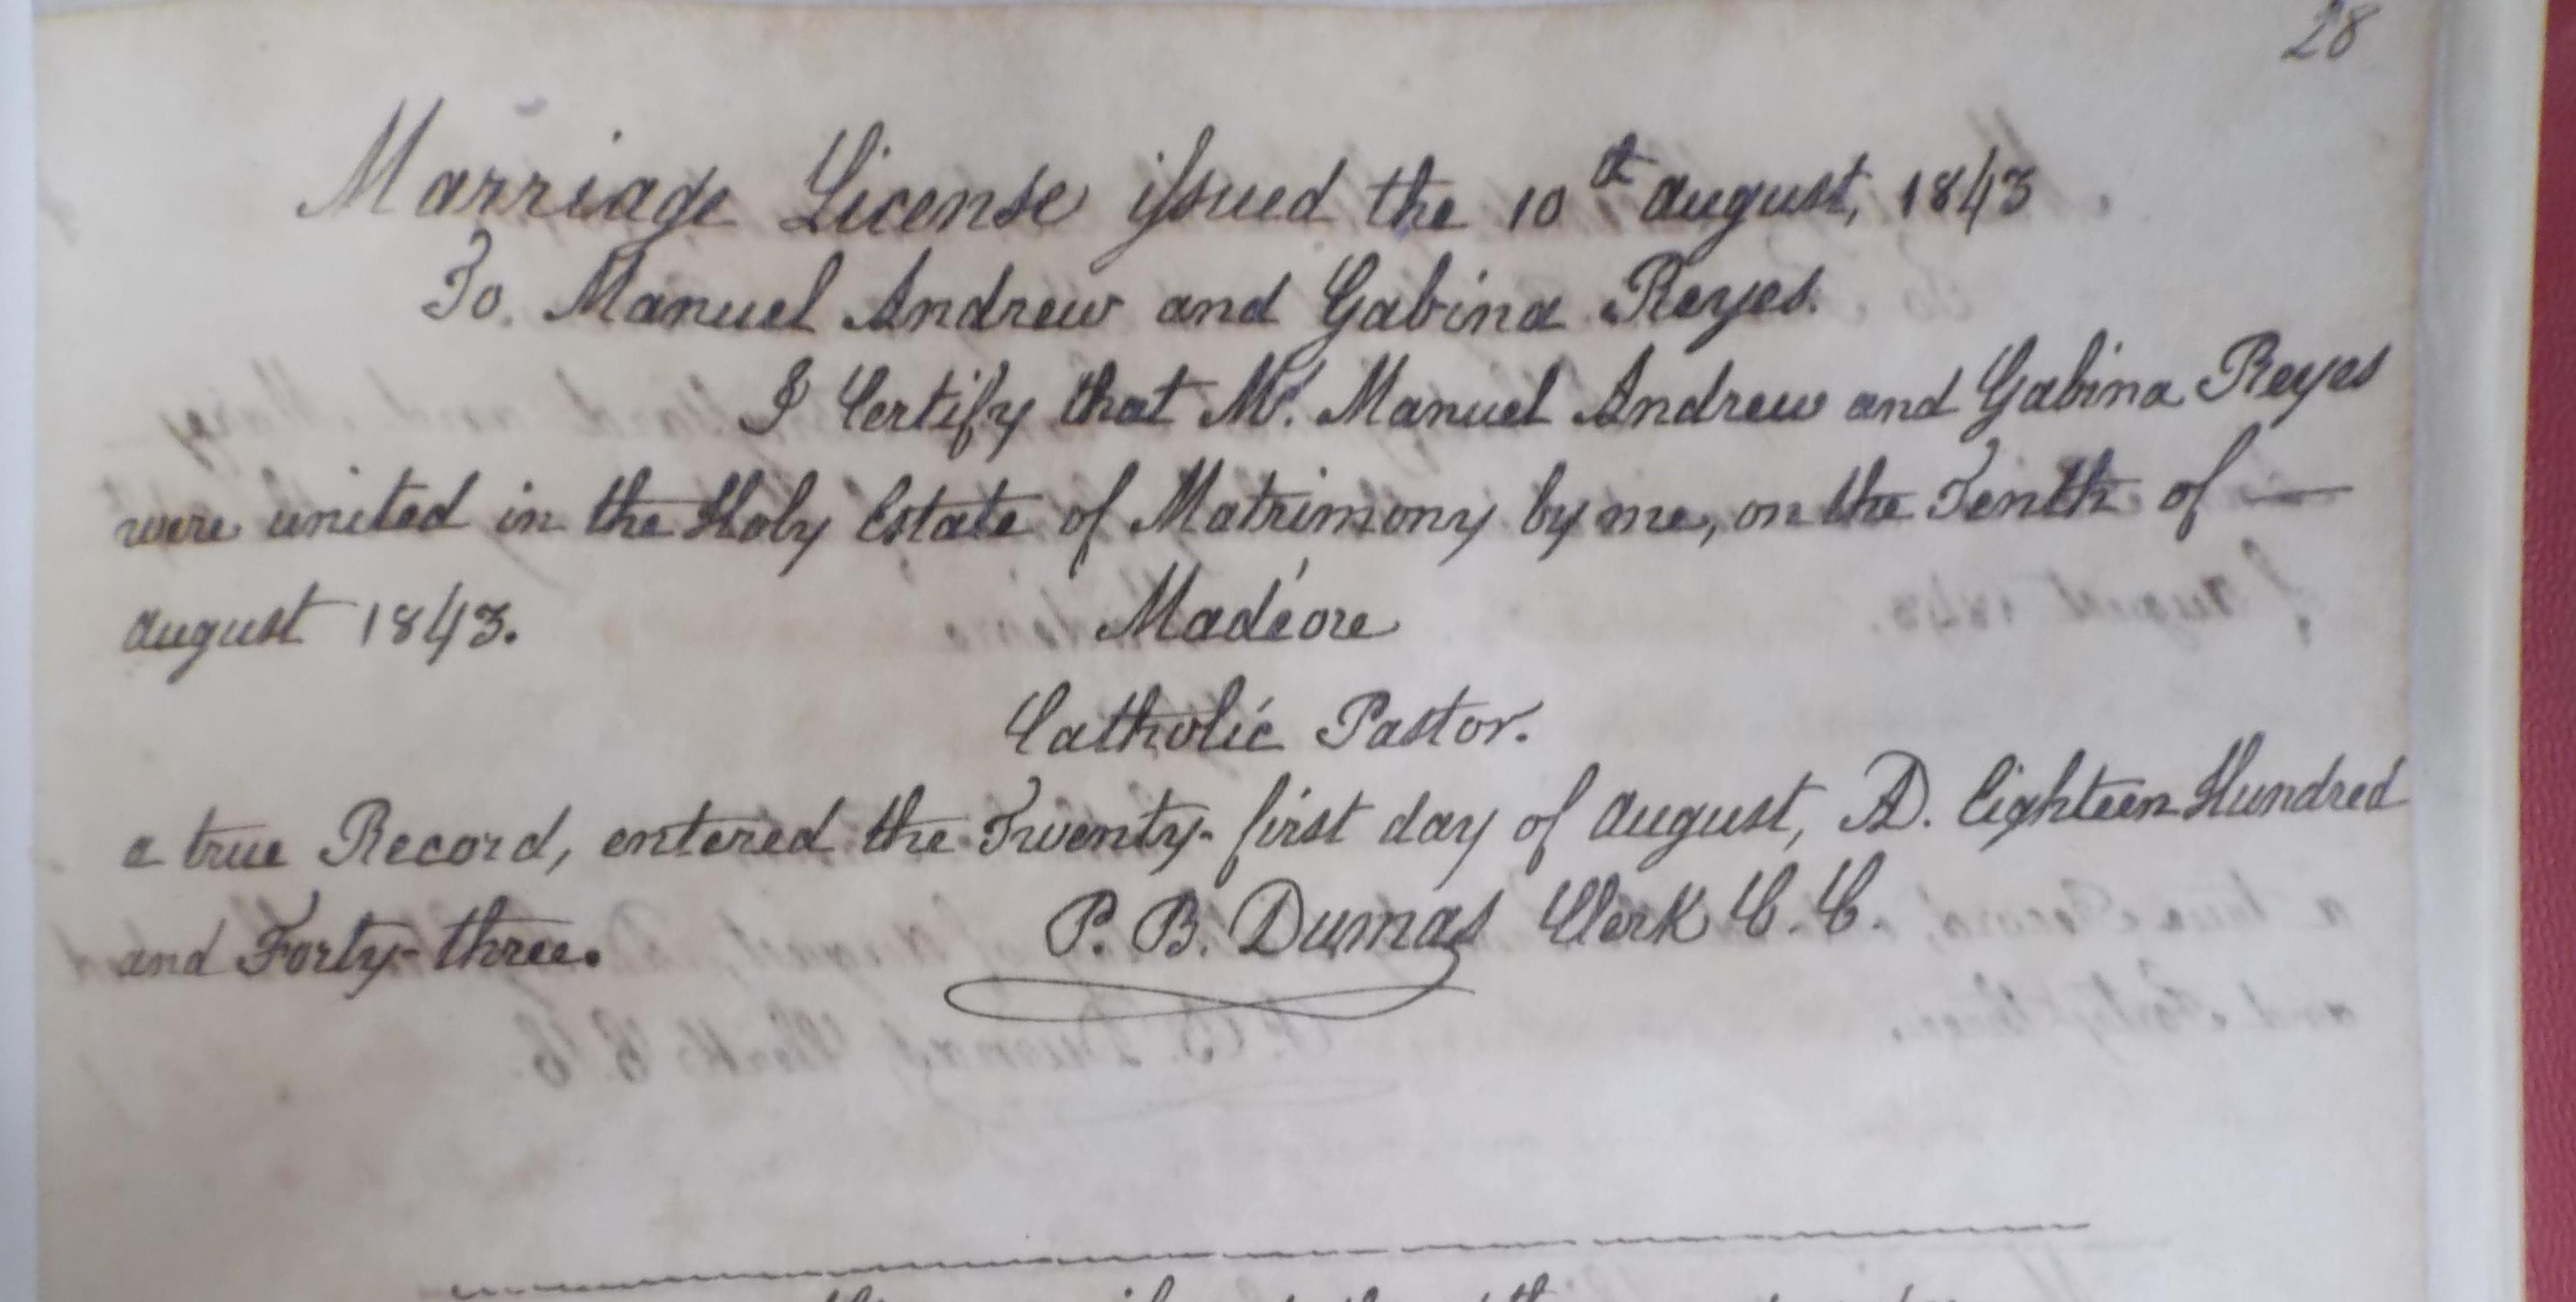 28
Marriage License issued the 10th august, 1843
To. Manuel Andrew and Gabina Reyes.
I Certify that Mr. Manuel Andrew and Gabina Reyes
were united in the Holy Estate of Matrimony by me, on the Tenth of —
august 1843. Madéore
Catholic Pastor.
a true Record, entered the Twenty-first day of august, AD. Eighteen Hundred
and Forty-three. P. B. Dumas Clerk C. C.